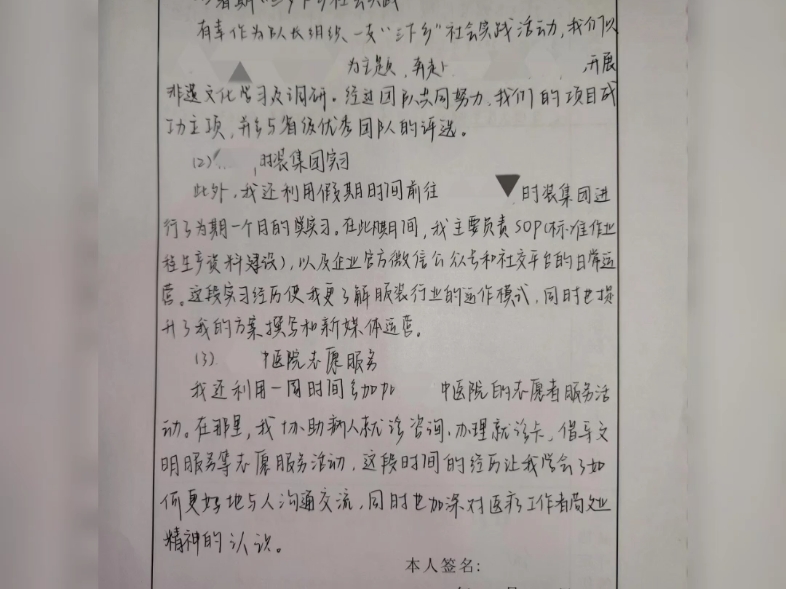 有幸作为队长组织一支“三下乡”社会实践活动，我们以
为主题，再走 开展
非遗文化学习及调研。经过团队共同努力，我们的项目成
功立项，并参与省级优秀团队的评选。
(2) 时装集团实习
此外，我还利用假期时间前往 时装集团进
行了为期一个月的实习。在此期间，我主要负责SOP(标准作业
程生产资料建设)，以及企业官方微信公众号和社交平台的日常运
营。这段实习经历使我更了解服装行业的运作模式，同时也提
升了我的方案撰写和新媒体运营。
(3) 中医院志愿服务
我还利用一周时间参加 中医院的志愿者服务活
动。在那里，我协助病人就诊咨询、办理就诊卡，倡导文
明服务等志愿服务活动，这段时间的经历让我学会了如
何更好地与人沟通交流，同时也加深对医疗工作者
精神的认识。
本人签名：